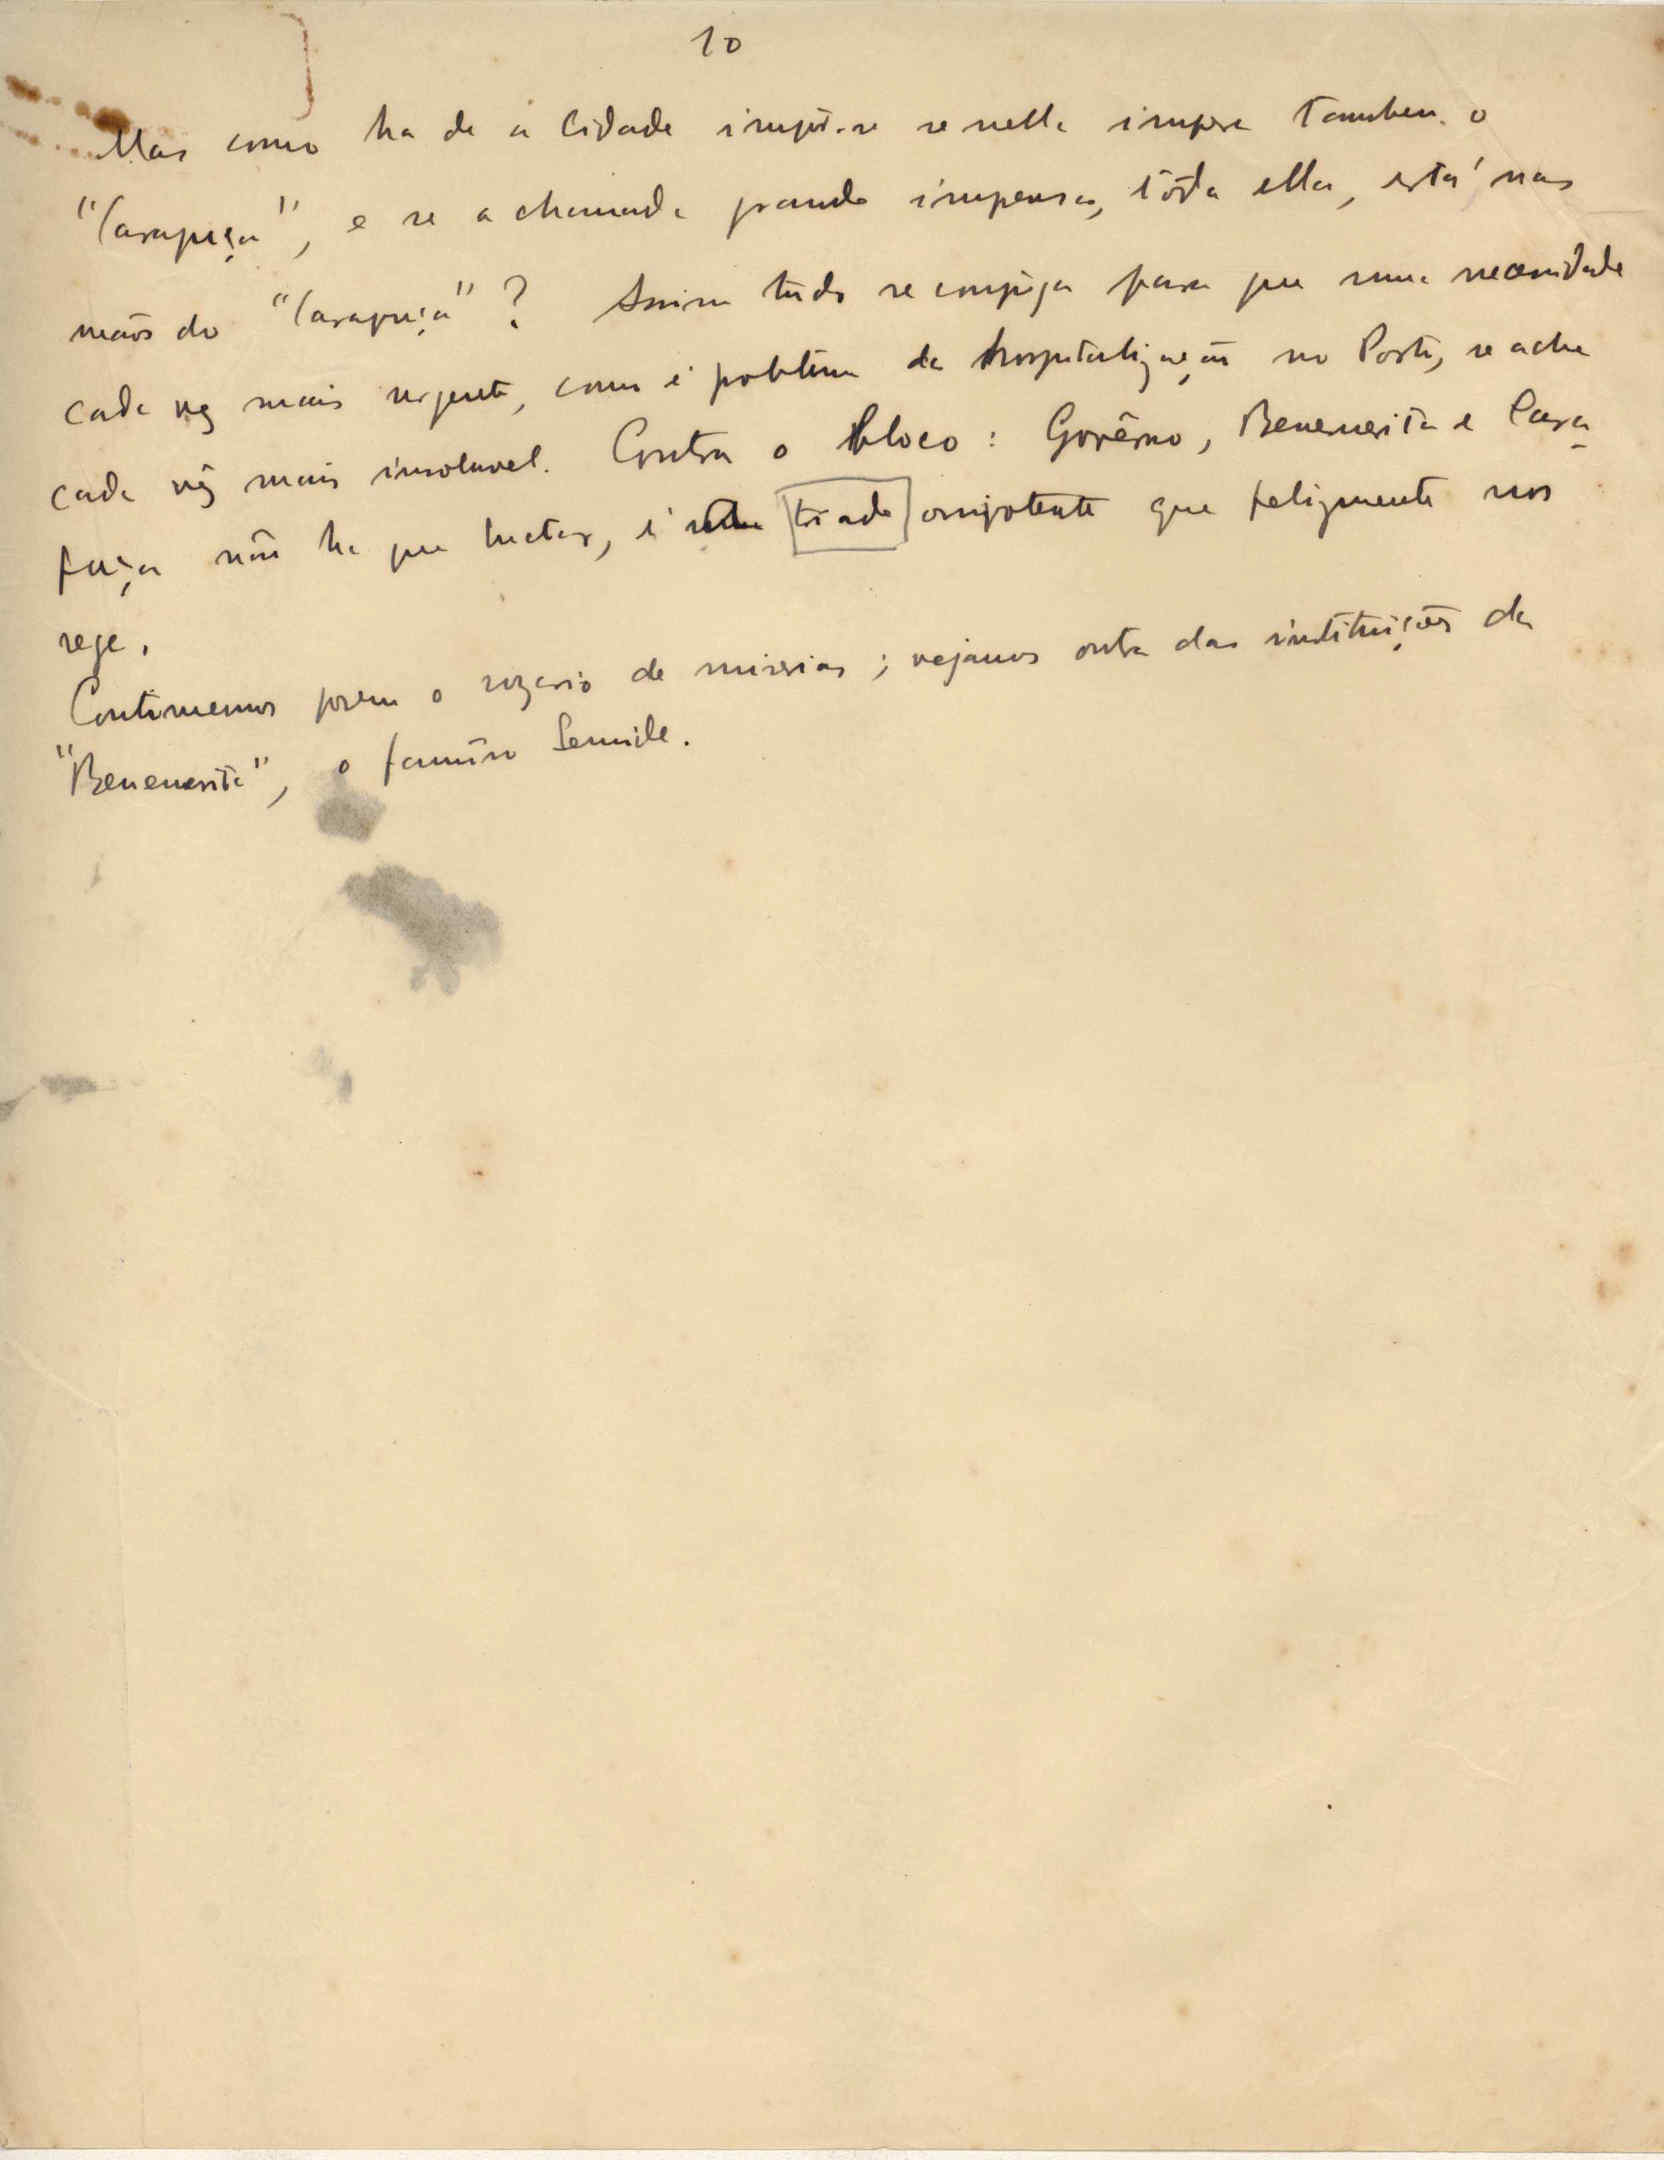 10
Mas como ha de a Cidade impôr-se se nella impera tambem o
"Carapuça", e se a chamada grande imprensa, tôda ella, está nas
mãos do "Carapuça"? Assim tudo se conjuga para que uma necessidade
cada vez mais urgente, como é problema da hospitalização no Porto, se ache
cada vez mais insoluvel. Contra o bloco: Govêrno, Benemerita e Cara-
puça não ha que luctar, é triade omnipotente que felizmente nos
rege.
Continuemos porem o rozario de miserias; vejamos outra das instituições da
"Benemerita", o famôso Semide.